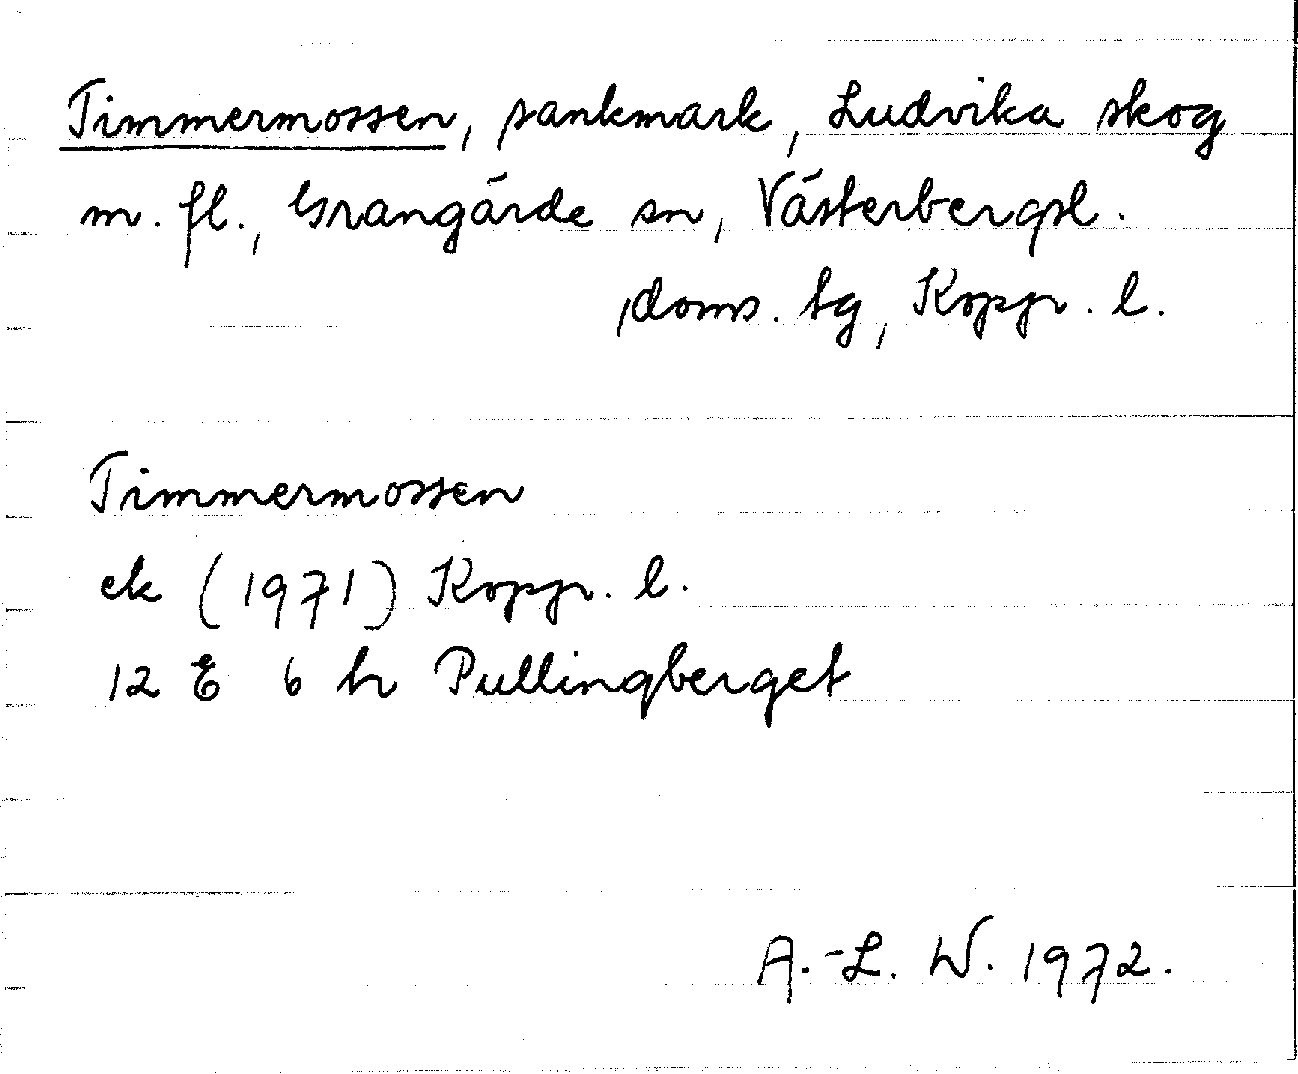 Timmermossen, sankmark, Ludvika skog
m. fl., Grangärde sn, Västerbergsl.
doms. tg, Koppr. l.
Timmermossen
ek (1971) Koppr. l.
12 E 6 h Pullingberget
A.-L. W. 1972.